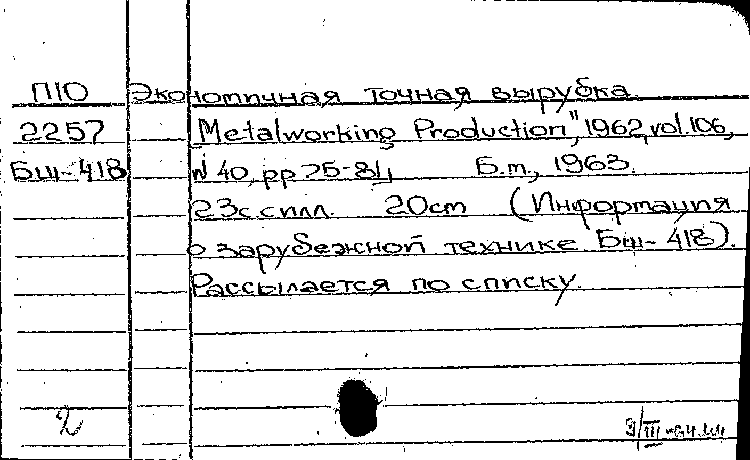 ПIO Экономичная точная вырубка.
2257 "Metalworking Production", 1962, vol. 106,
Бш-418 N 40, pp 75-84, Б.м., 1963.
23с с илл. 20см (Информация
о зарубежной технике Бш-418).
Рассылается по списку.
2